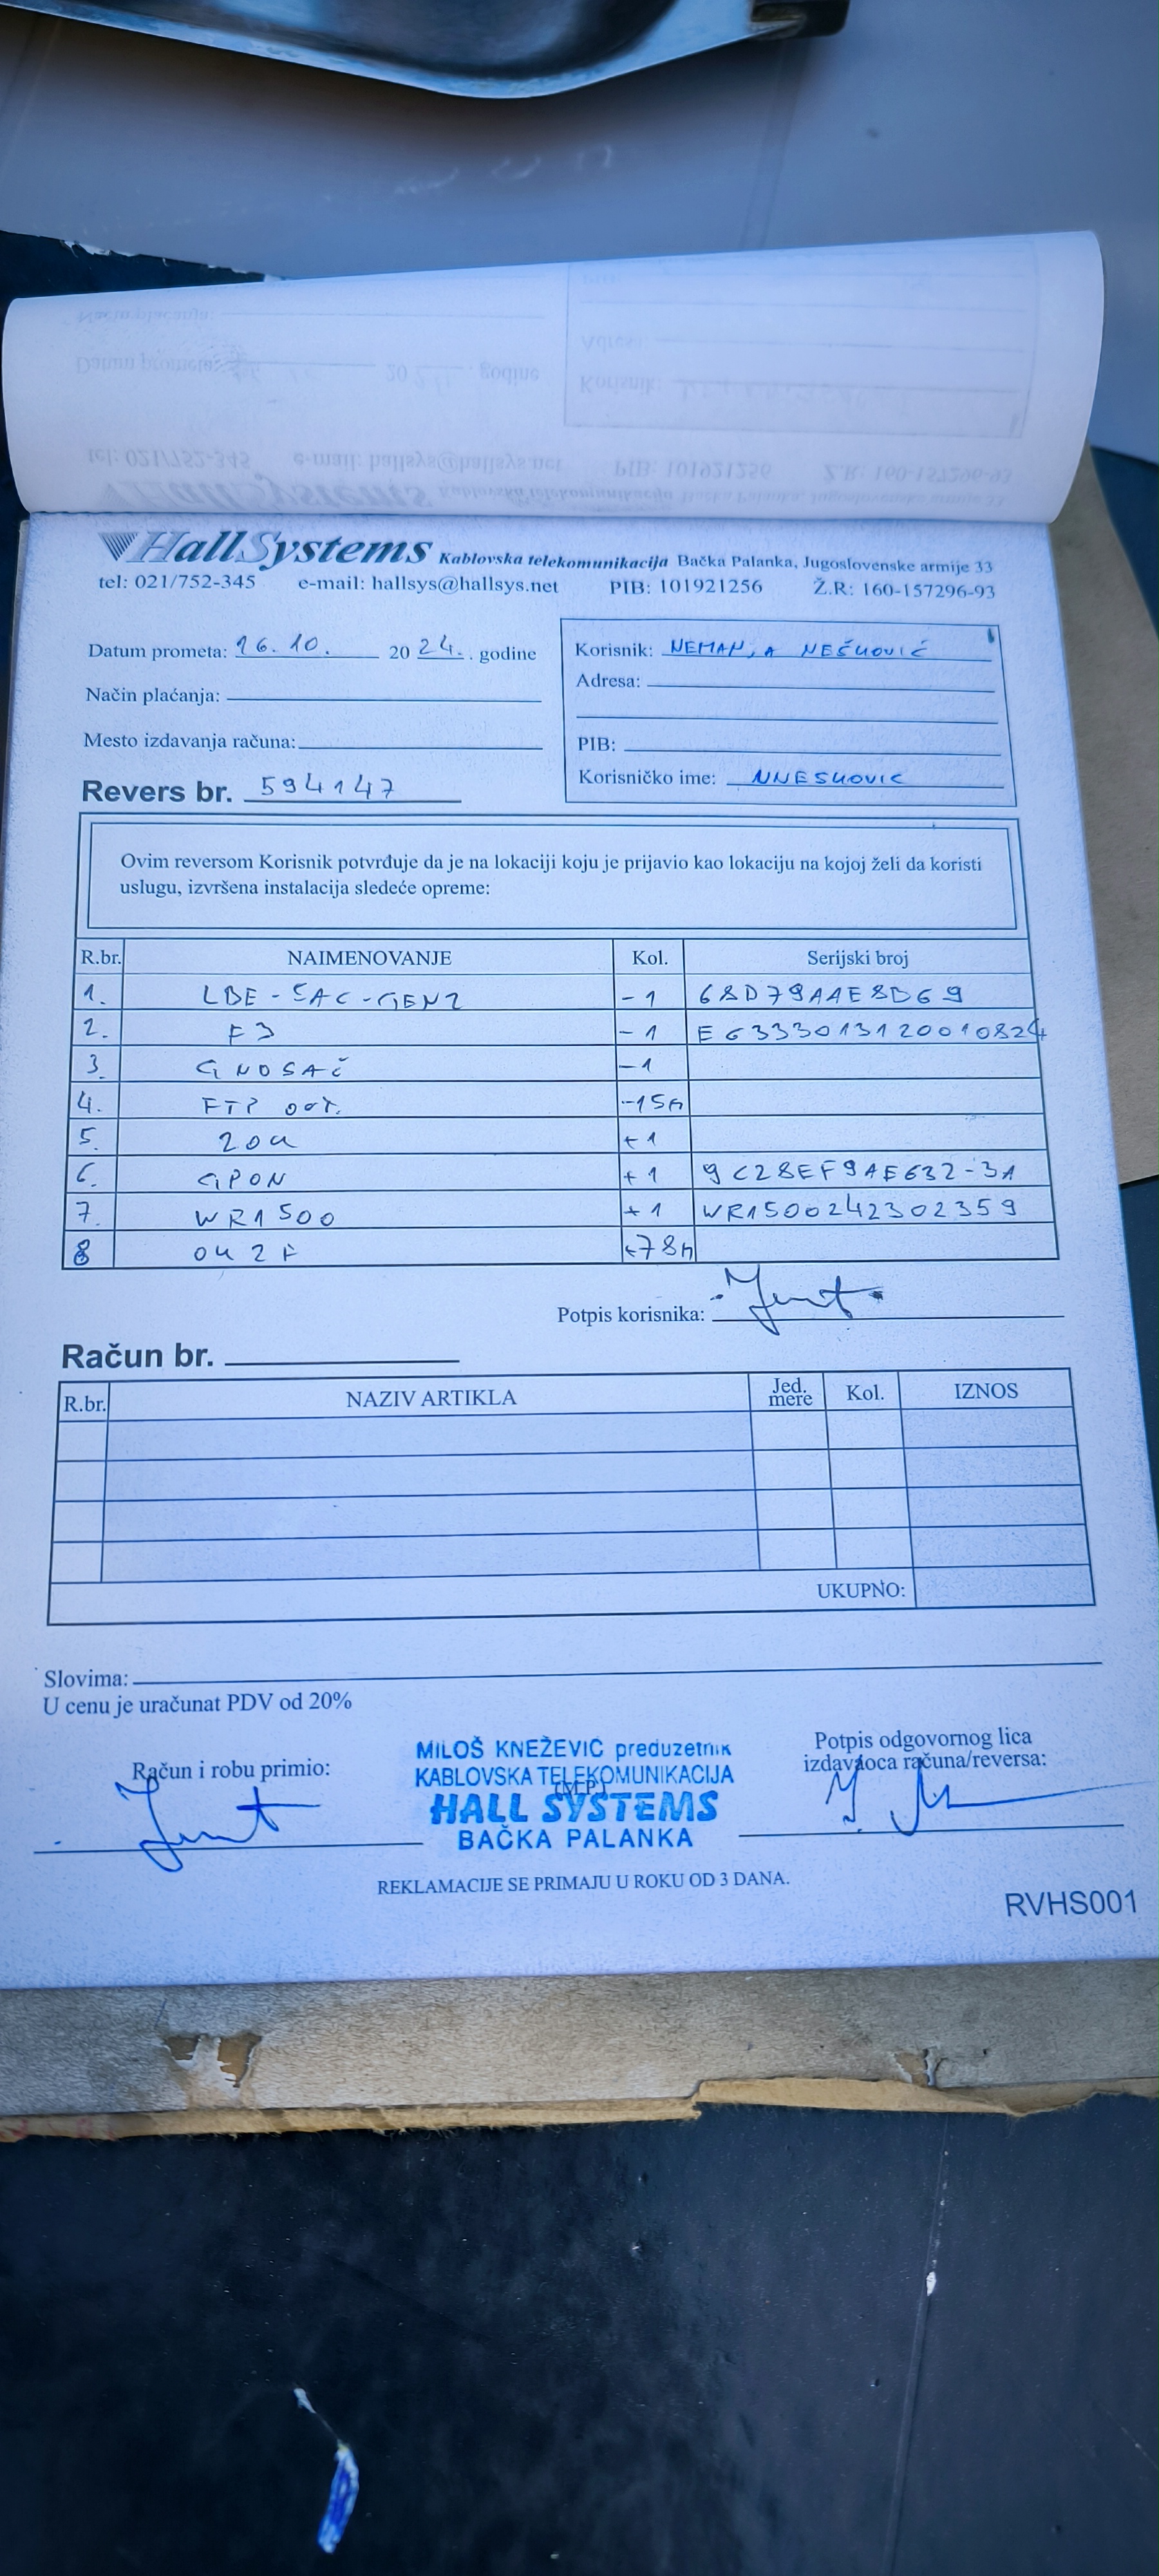 HallSystems Kablovska telekomunikacija Bačka Palanka, Jugoslovenske armije 33
tel: 021/752-345 e-mail: hallsys@hallsys.net PIB: 101921256 Ž.R: 160-157296-93
Datum prometa: 16.10. 2024. godine
Način plaćanja:
Mesto izdavanja računa:
Revers br. 594147
Korisnik: NEMANJA NEŠKOVIĆ
Adresa:
PIB:
Korisničko ime: NNESKOVIC
Ovim reversom Korisnik potvrđuje da je na lokaciji koju je prijavio kao lokaciju na kojoj želi da koristi
uslugu, izvršena instalacija sledeće opreme:
R.br. NAIMENOVANJE Kol. Serijski broj
1. LBE-5AC-GEN2 -1 68D79AAE8D69
2. F3 -1 E6333013120010824
3. G NOSAČ -1
4. FTP -15m
5. ZOK +1
6. GPON +1 9C28EF9AE632-3A
7. WR1500 +1 WR1500242302359
8 OK 2F +78m
Potpis korisnika:
Račun br.
R.br. NAZIV ARTIKLA Jed. mere Kol. IZNOS
UKUPNO:
Slovima:
U cenu je uračunat PDV od 20%
Račun i robu primio:
MILOŠ KNEŽEVIĆ preduzetnik
KABLOVSKA TELEKOMUNIKACIJA
(M.P.)
HALL SYSTEMS
BAČKA PALANKA
Potpis odgovornog lica
izdavaoca računa/reversa:
REKLAMACIJE SE PRIMAJU U ROKU OD 3 DANA.
RVHS001